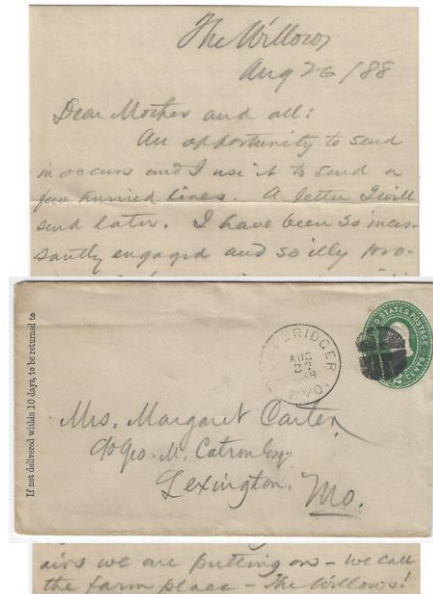 The Willows
Aug 26 / 88
Dear Mother and all:
An opportunity to send
in occurs and I use it to send a
few hurried lines. A letter I will
send later. I have been so inces-
santly engaged and so illy pro-
If not delivered within 10 days, to be returned to
BRIDGER
AUG
WYO.
UNITED STATES POSTAGE
CENTS
Mrs. Margaret Carter,
c/o Geo. M. Catron Esq.
Lexington,
Mo.
airs we are putting on - we call
the farm place - The Willows!